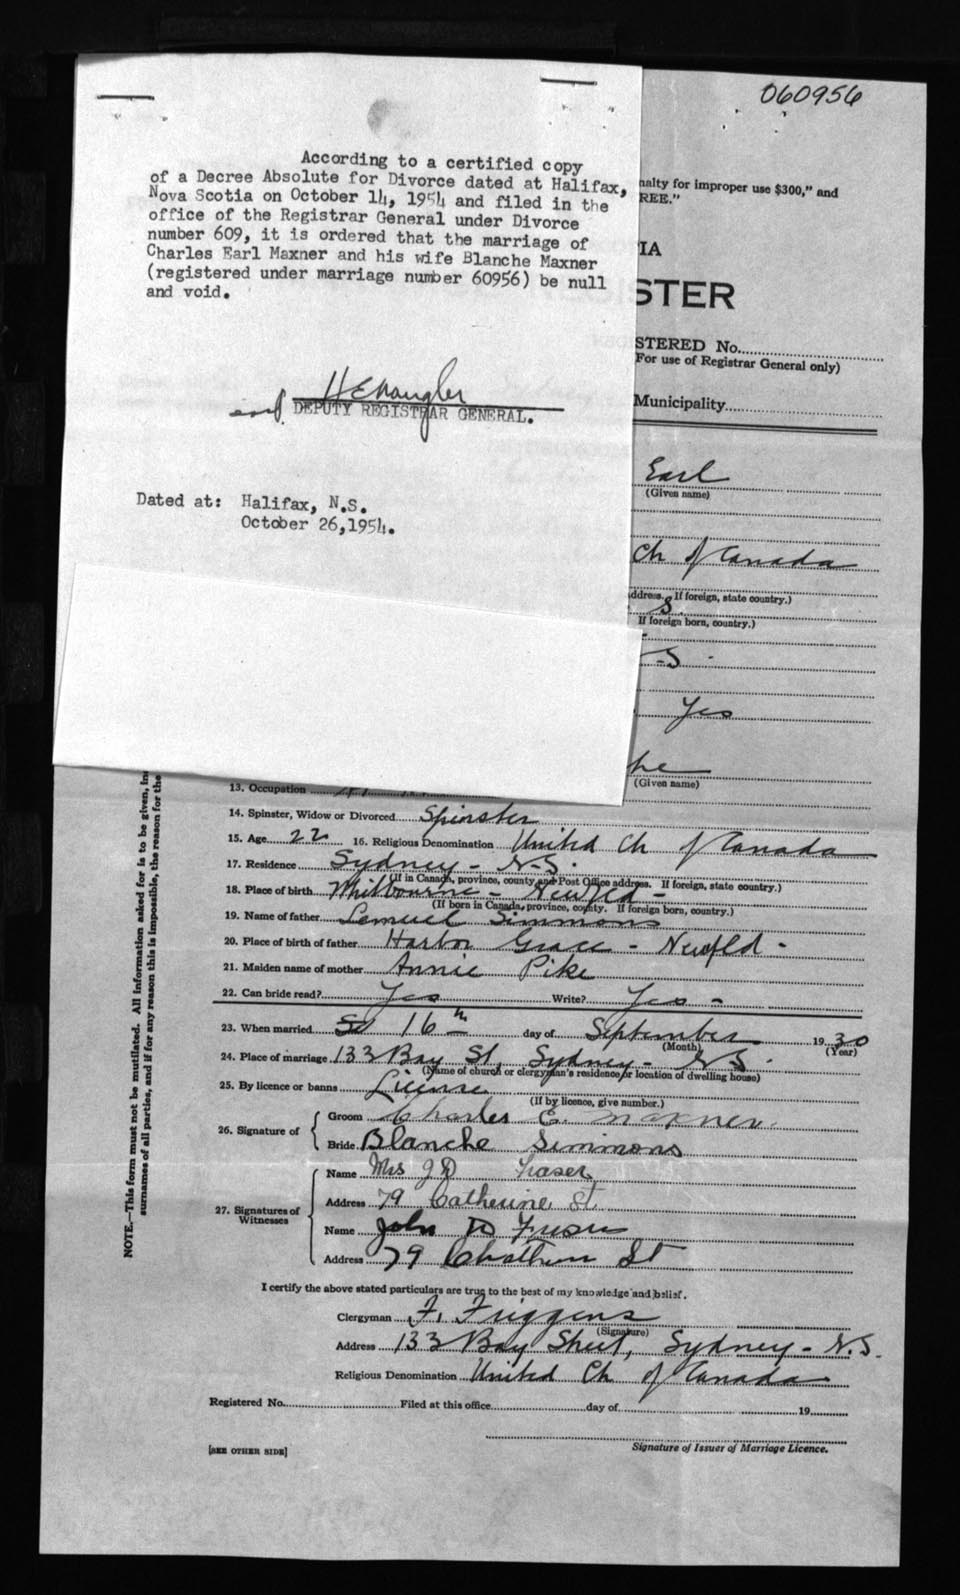 060956
According to a certified copy
of a Decree Absolute for Divorce dated at Halifax,
Nova Scotia on October 14, 1954 and filed in the
office of the Registrar General under Divorce
number 609, it is ordered that the marriage of
Charles Earl Maxner and his wife Blanche Maxner
(registered under marriage number 60956) be null
and void.
DEPUTY REGISTRAR GENERAL.
Dated at: Halifax, N.S.
October 26,1954.
nalty for improper use $300," and
REE."
IA
STER
STERED No.
For use of Registrar General only)
Municipality
Earl
(Given name)
Ch of Canada
ddress. If foreign, state country.)
S.
If foreign born, country.)
S
Yes
he
(Given name)
13. Occupation
14. Spinster, Widow or Divorced Spinster
15. Age 22 16. Religious Denomination United Ch of Canada
17. Residence Sydney - N.S.
(If in Canada, province, county and Post Office address. If foreign, state country.)
18. Place of birth Milbourne - Newfld -
(If born in Canada, province, county. If foreign born, country.)
19. Name of father Lemuel Simmons
20. Place of birth of father Harbor Grace - Newfld -
21. Maiden name of mother Annie Pike
22. Can bride read? Yes Write? Yes -
23. When married 16th day of September 1930
(Month) (Year)
24. Place of marriage 133 Bay St, Sydney - N.S.
(Name of church or clergyman's residence or location of dwelling house)
25. By licence or banns License
(If by licence, give number.)
26. Signature of
Groom Charles E. Maxner.
Bride Blanche Simmons
27. Signatures of Witnesses
Name Mrs J D Fraser
Address 79 Catherine St
Name John D Fraser
Address 79 Cathern St
I certify the above stated particulars are true to the best of my knowledge and belief.
Clergyman F. Friggens
(Signature)
Address 133 Bay Street, Sydney - N.S.
Religious Denomination United Ch of Canada
Registered No. Filed at this office day of 19
Signature of Issuer of Marriage Licence.
[SEE OTHER SIDE]
NOTE.—This form must not be mutilated. All information asked for is to be given, in
surnames of all parties, and if for any reason this is impossible, the reason for the